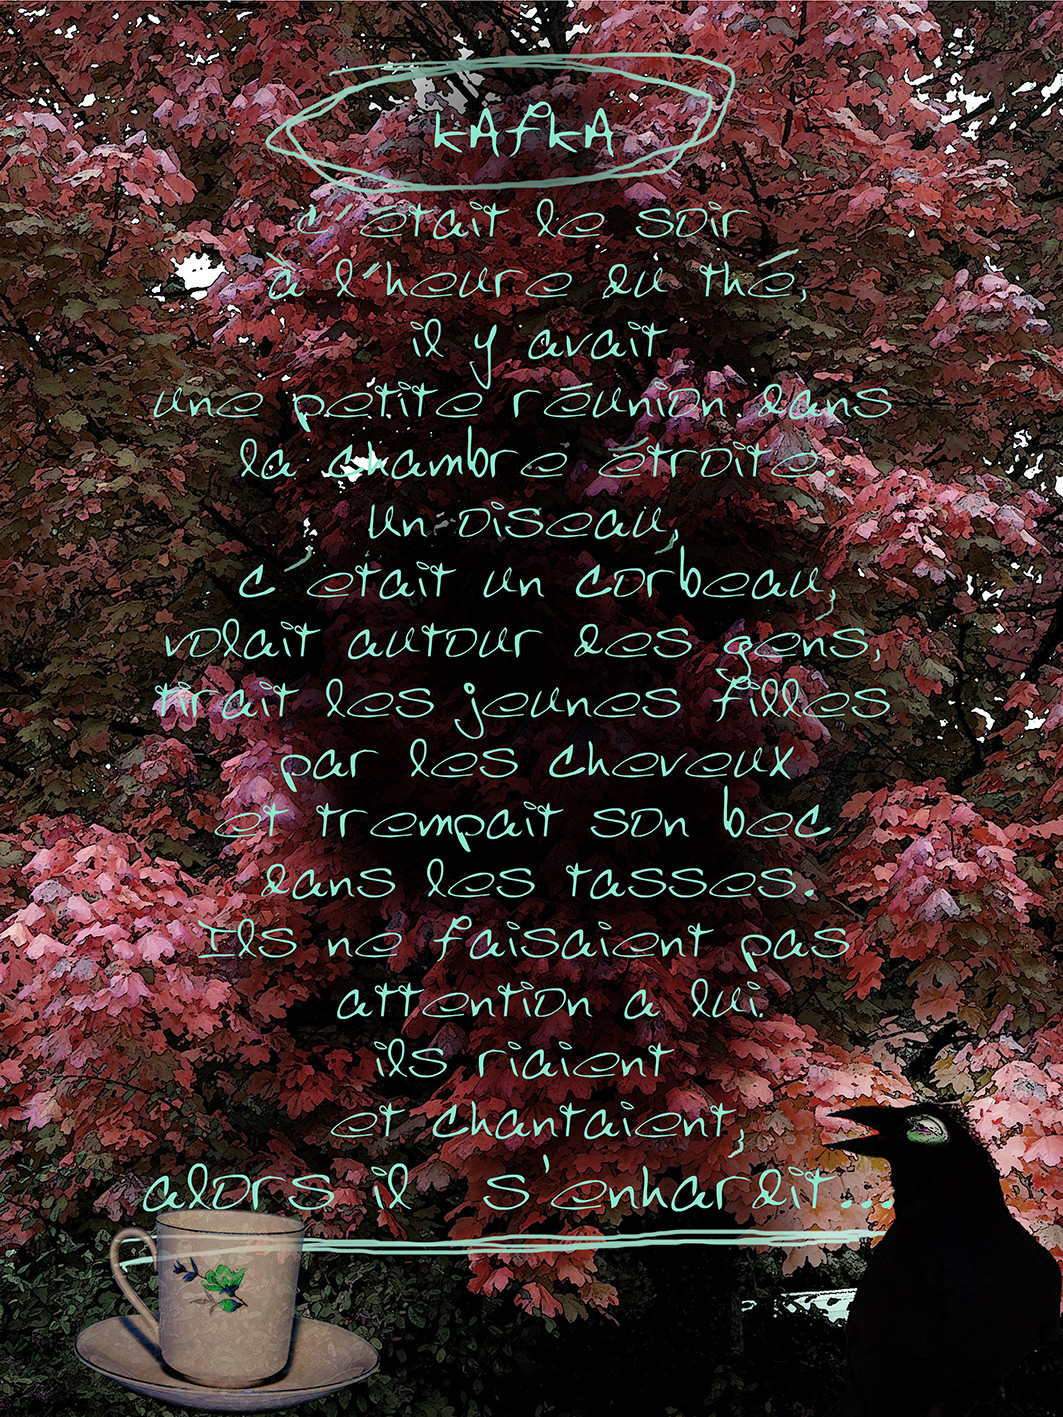 kAfkA
c'était le soir
à l'heure du thé,
il y avait
une petite réunion dans
la chambre étroite.
Un oiseau,
c'était un corbeau,
volait autour des gens,
tirait les jeunes filles
par les cheveux
et trempait son bec
dans les tasses.
Ils ne faisaient pas
attention a lui.
ils riaient
et chantaient,
alors il s'enhardit...